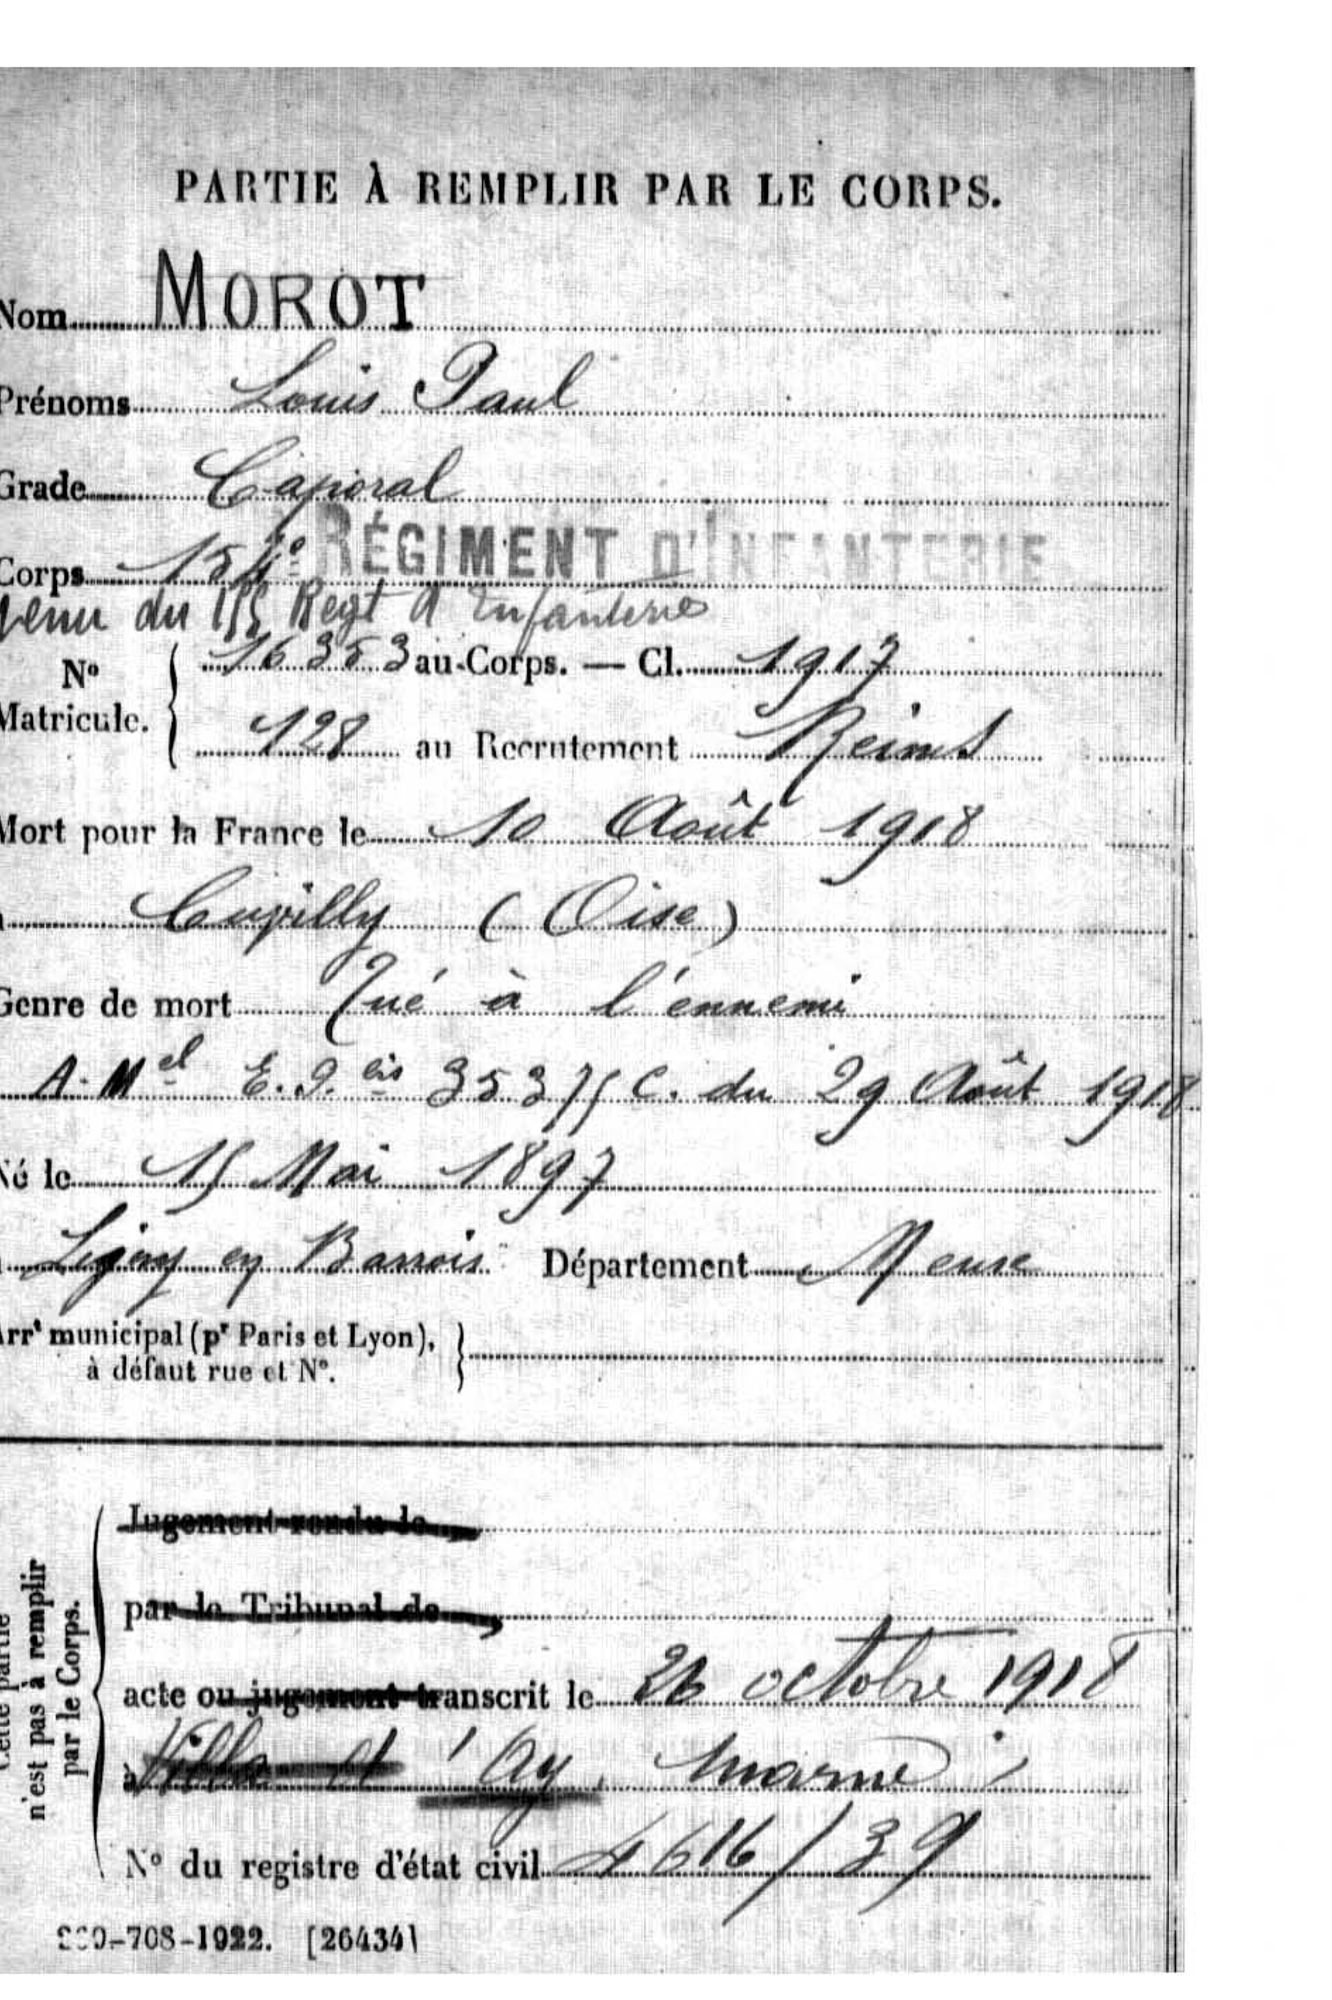 PARTIE À REMPLIR PAR LE CORPS.
Nom MOROT
Prénoms Louis Paul
Grade Caporal
Corps 154e RÉGIMENT D'INFANTERIE
venu du 155 Regt d'Infanterie
No Matricule. 16353 au Corps. — Cl. 1917
128 au Recrutement Reims
Mort pour la France le 10 Août 1918
à Cuvilly (Oise)
Genre de mort Tué à l'ennemi
A. Mel E. 9. 35375 C. du 29 Août 1918
Né le 15 Mai 1897
à Ligny en Barrois Département Meuse
Arrt municipal (pr Paris et Lyon),
à défaut rue et No.
Cette partie
n'est pas à remplir
par le Corps.
Jugement rendu le
par le Tribunal de
acte ou jugement transcrit le 26 octobre 1918
à Ay, Marne
No du registre d'état civil 4616/39
-708-1922. [26434]